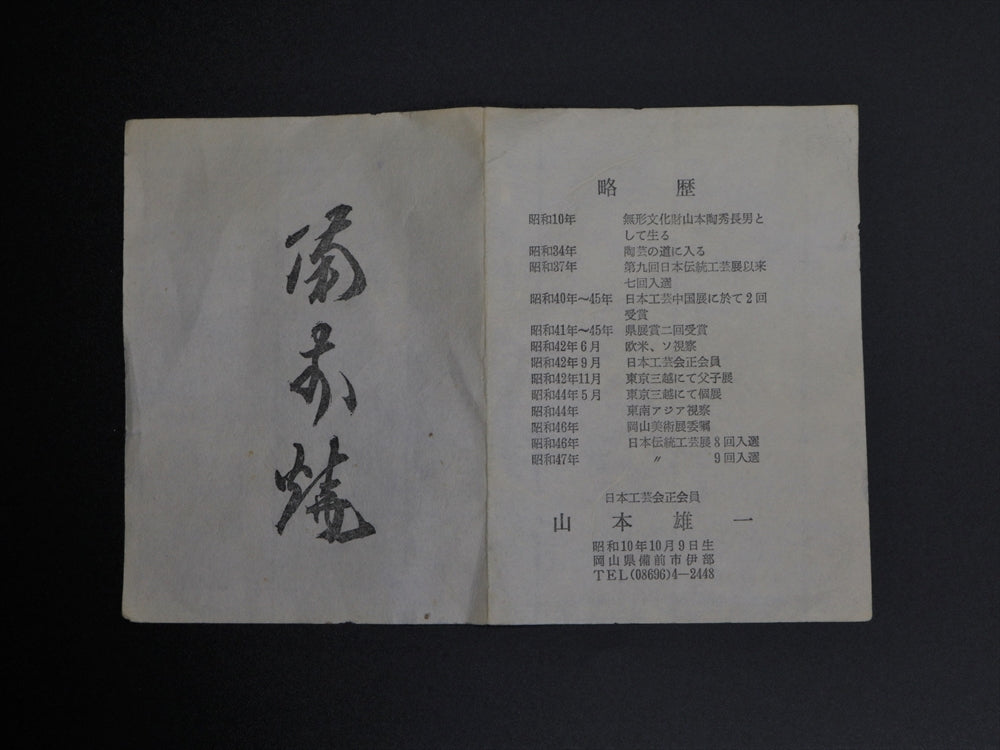 備前焼
略歴
昭和10年 無形文化財山本陶秀長男と
して生る
昭和34年 陶芸の道に入る
昭和37年 第九回日本伝統工芸展以来
七回入選
昭和40年〜45年 日本工芸中国展に於て2回
受賞
昭和41年〜45年 県展賞二回受賞
昭和42年6月 欧米、ソ視察
昭和42年9月 日本工芸会正会員
昭和42年11月 東京三越にて父子展
昭和44年5月 東京三越にて個展
昭和44年 東南アジア視察
昭和46年 岡山美術展委嘱
昭和46年 日本伝統工芸展8回入選
昭和47年 〃 9回入選
日本工芸会正会員
山本雄一
昭和10年10月9日生
岡山県備前市伊部
TEL(08696)4—2448